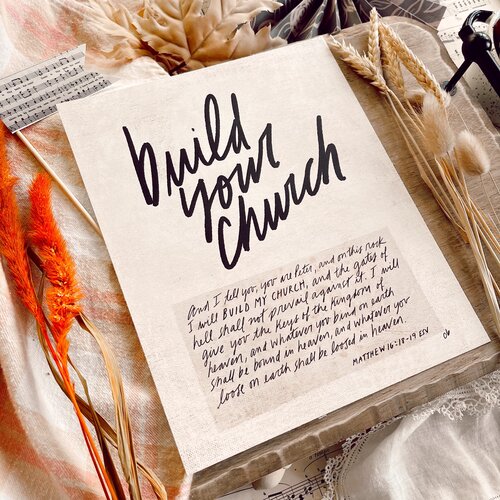 build
your
church
And I tell you, you are Peter, and on this rock
I will BUILD MY CHURCH, and the gates of
hell shall not prevail against it. I will
give you the keys of the kingdom of
heaven, and whatever you bind on earth
shall be bound in heaven, and whatever you
loose on earth shall be loosed in heaven.
MATTHEW 16:18-19 ESV